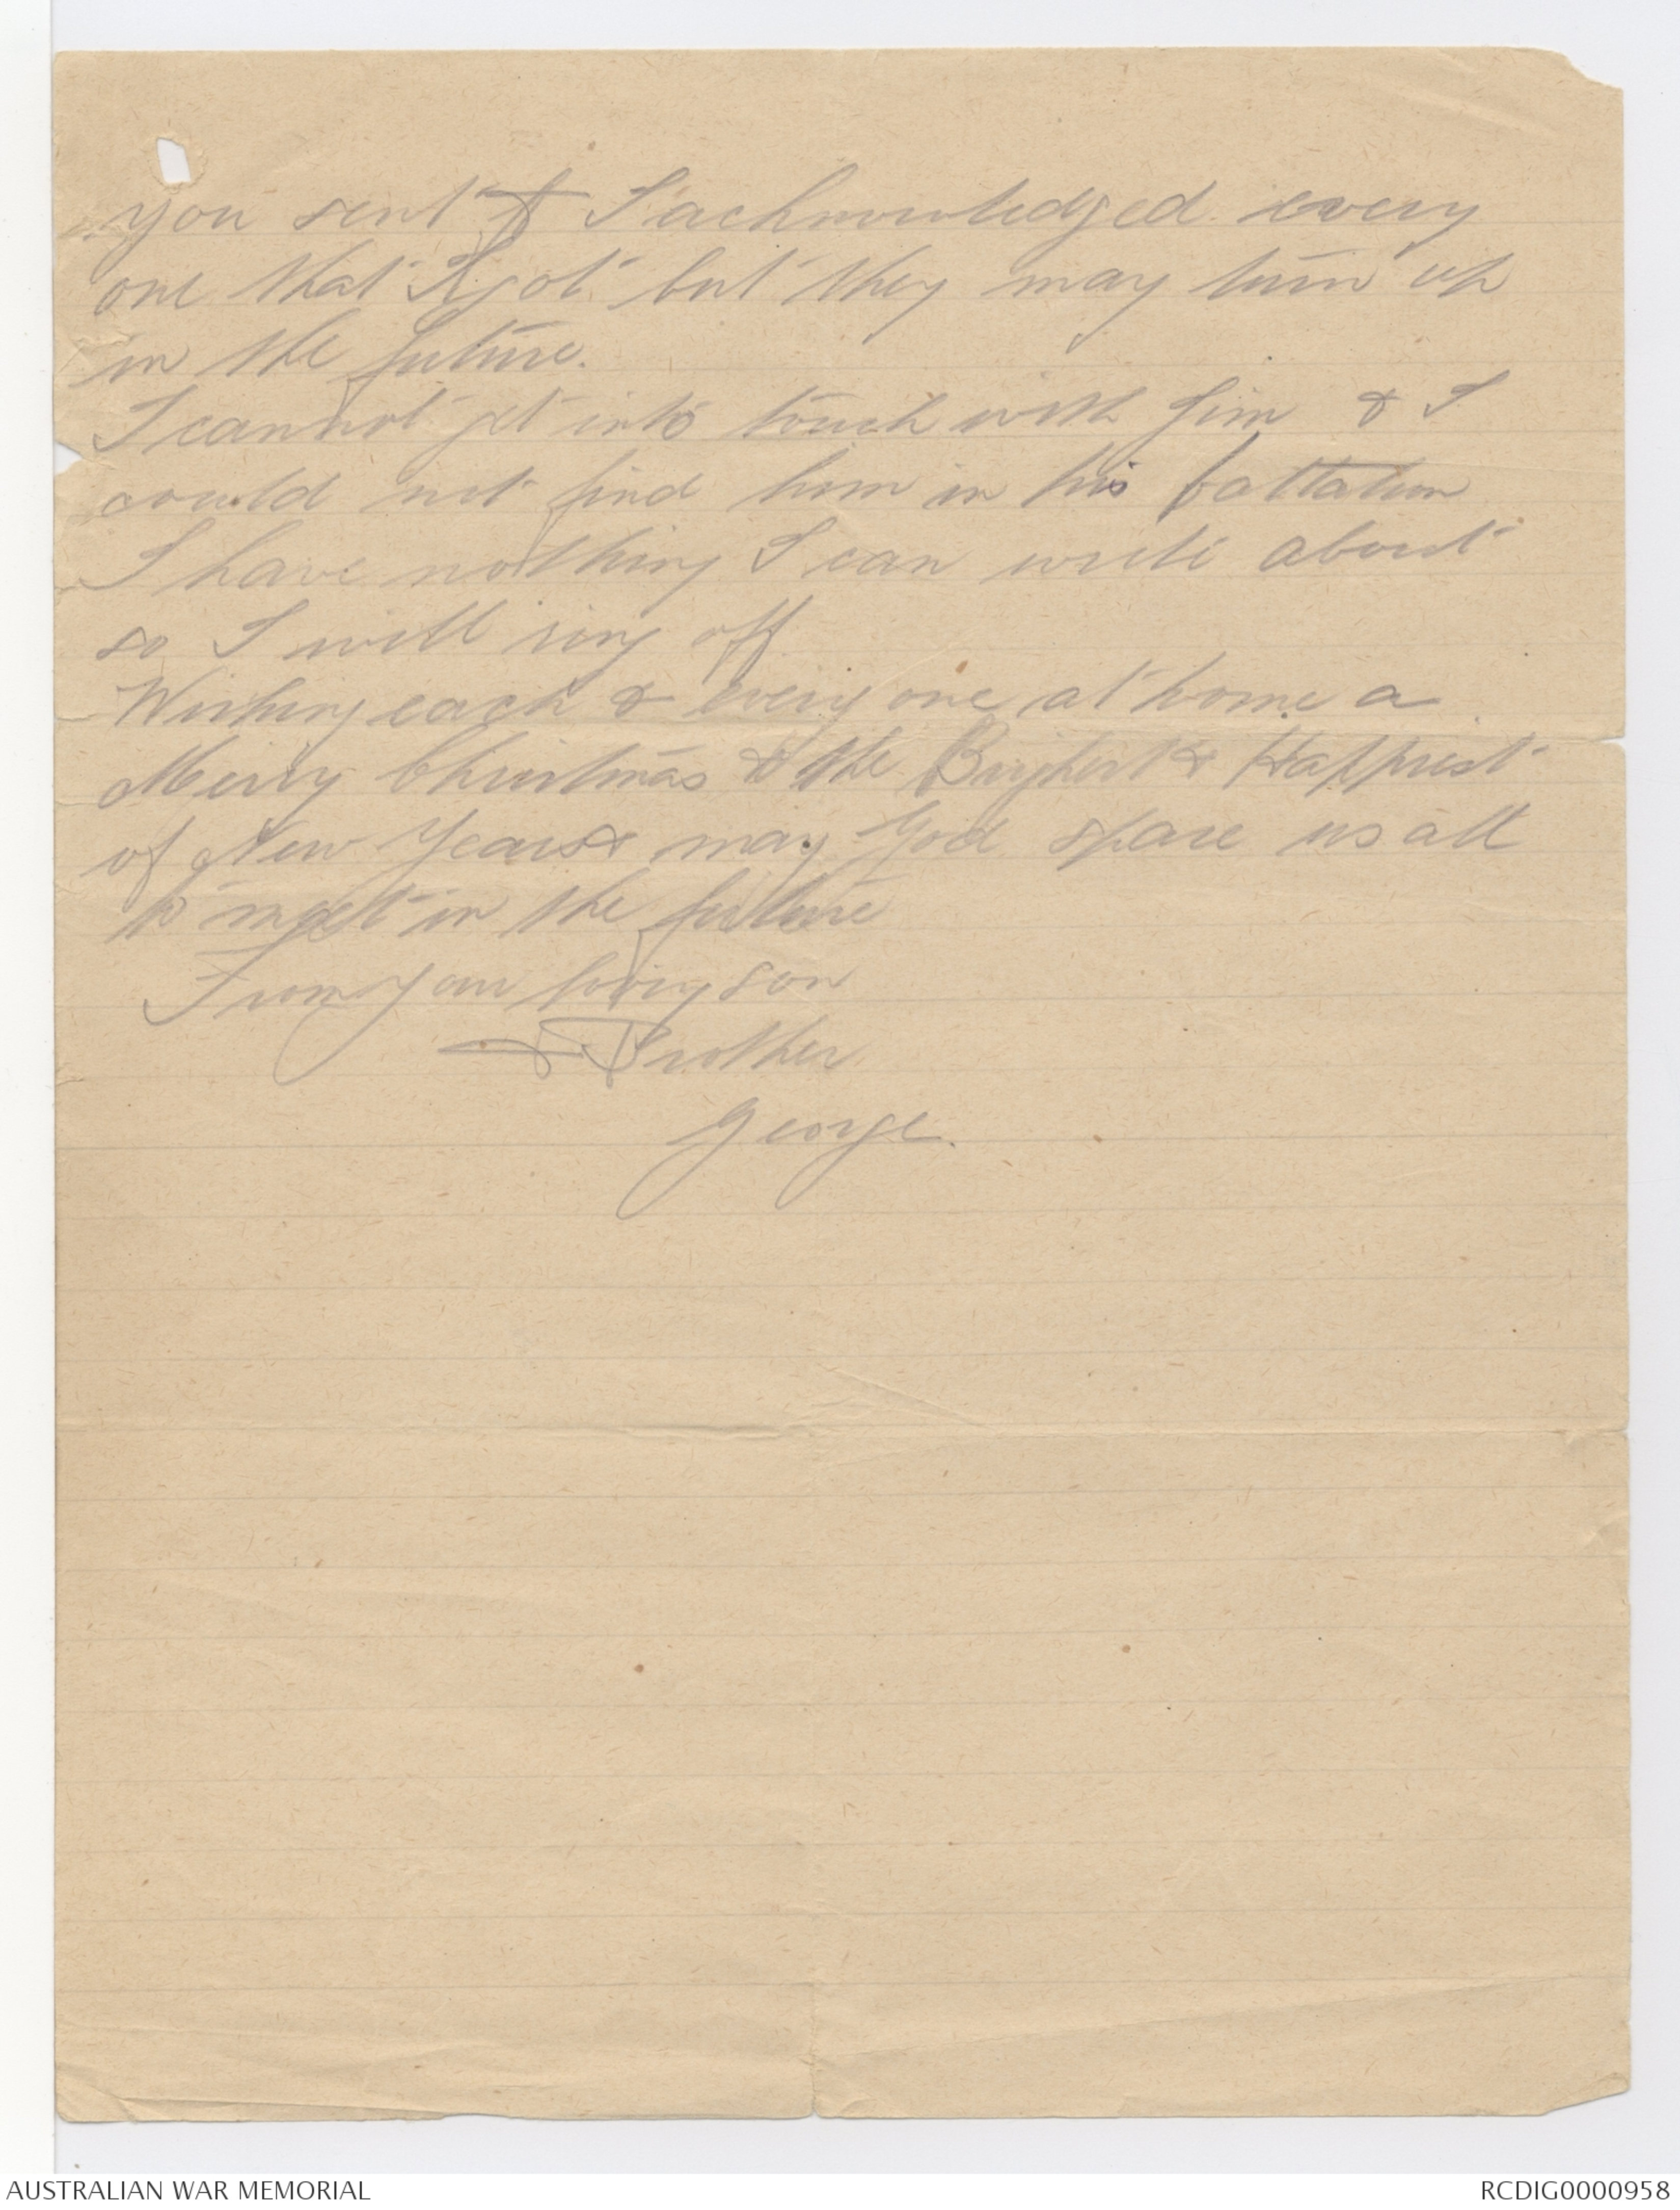 you sent & I acknowledged every
one that I got but they may turn up
in the future.
I cannot get into touch with Jim & I
could not find him in his battalion
I have nothing I can write about
so I will ring off
Wishing each & every one at home a
Merry Christmas & the Brightest & Happiest
of New Years & may God spare us all
to meet in the future
From your loving son
& Brother
George.
AUSTRALIAN WAR MEMORIAL
RCDIG0000958